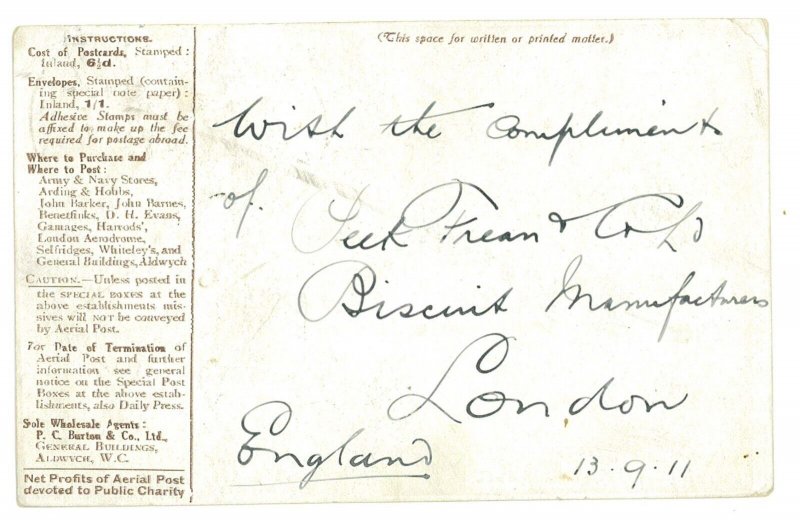 INSTRUCTIONS.
Cost of Postcards, Stamped:
Inland, 6½d.
Envelopes, Stamped (contain-
ing special note paper):
Inland, 1/1.
Adhesive Stamps must be
affixed to make up the fee
required for postage abroad.
Where to Purchase and
Where to Post:
Army & Navy Stores,
Arding & Hobbs,
John Barker, John Barnes,
Benetfinks, D. H. Evans,
Gamages, Harrods',
London Aerodrome,
Selfridges, Whiteley's, and
General Buildings, Aldwych
CAUTION.—Unless posted in
the SPECIAL BOXES at the
above establishments mis-
sives will NOT be conveyed
by Aerial Post.
For Date of Termination of
Aerial Post and further
information see general
notice on the Special Post
Boxes at the above estab-
lishments, also Daily Press.
Sole Wholesale Agents:
P. C. Burton & Co., Ltd.,
GENERAL BUILDINGS,
ALDWYCH, W.C.
Net Profits of Aerial Post
devoted to Public Charity
(This space for written or printed matter.)
With the compliments
of
Peek Frean & Co Ld
Biscuit Manufacturers
London
England
13.9.11